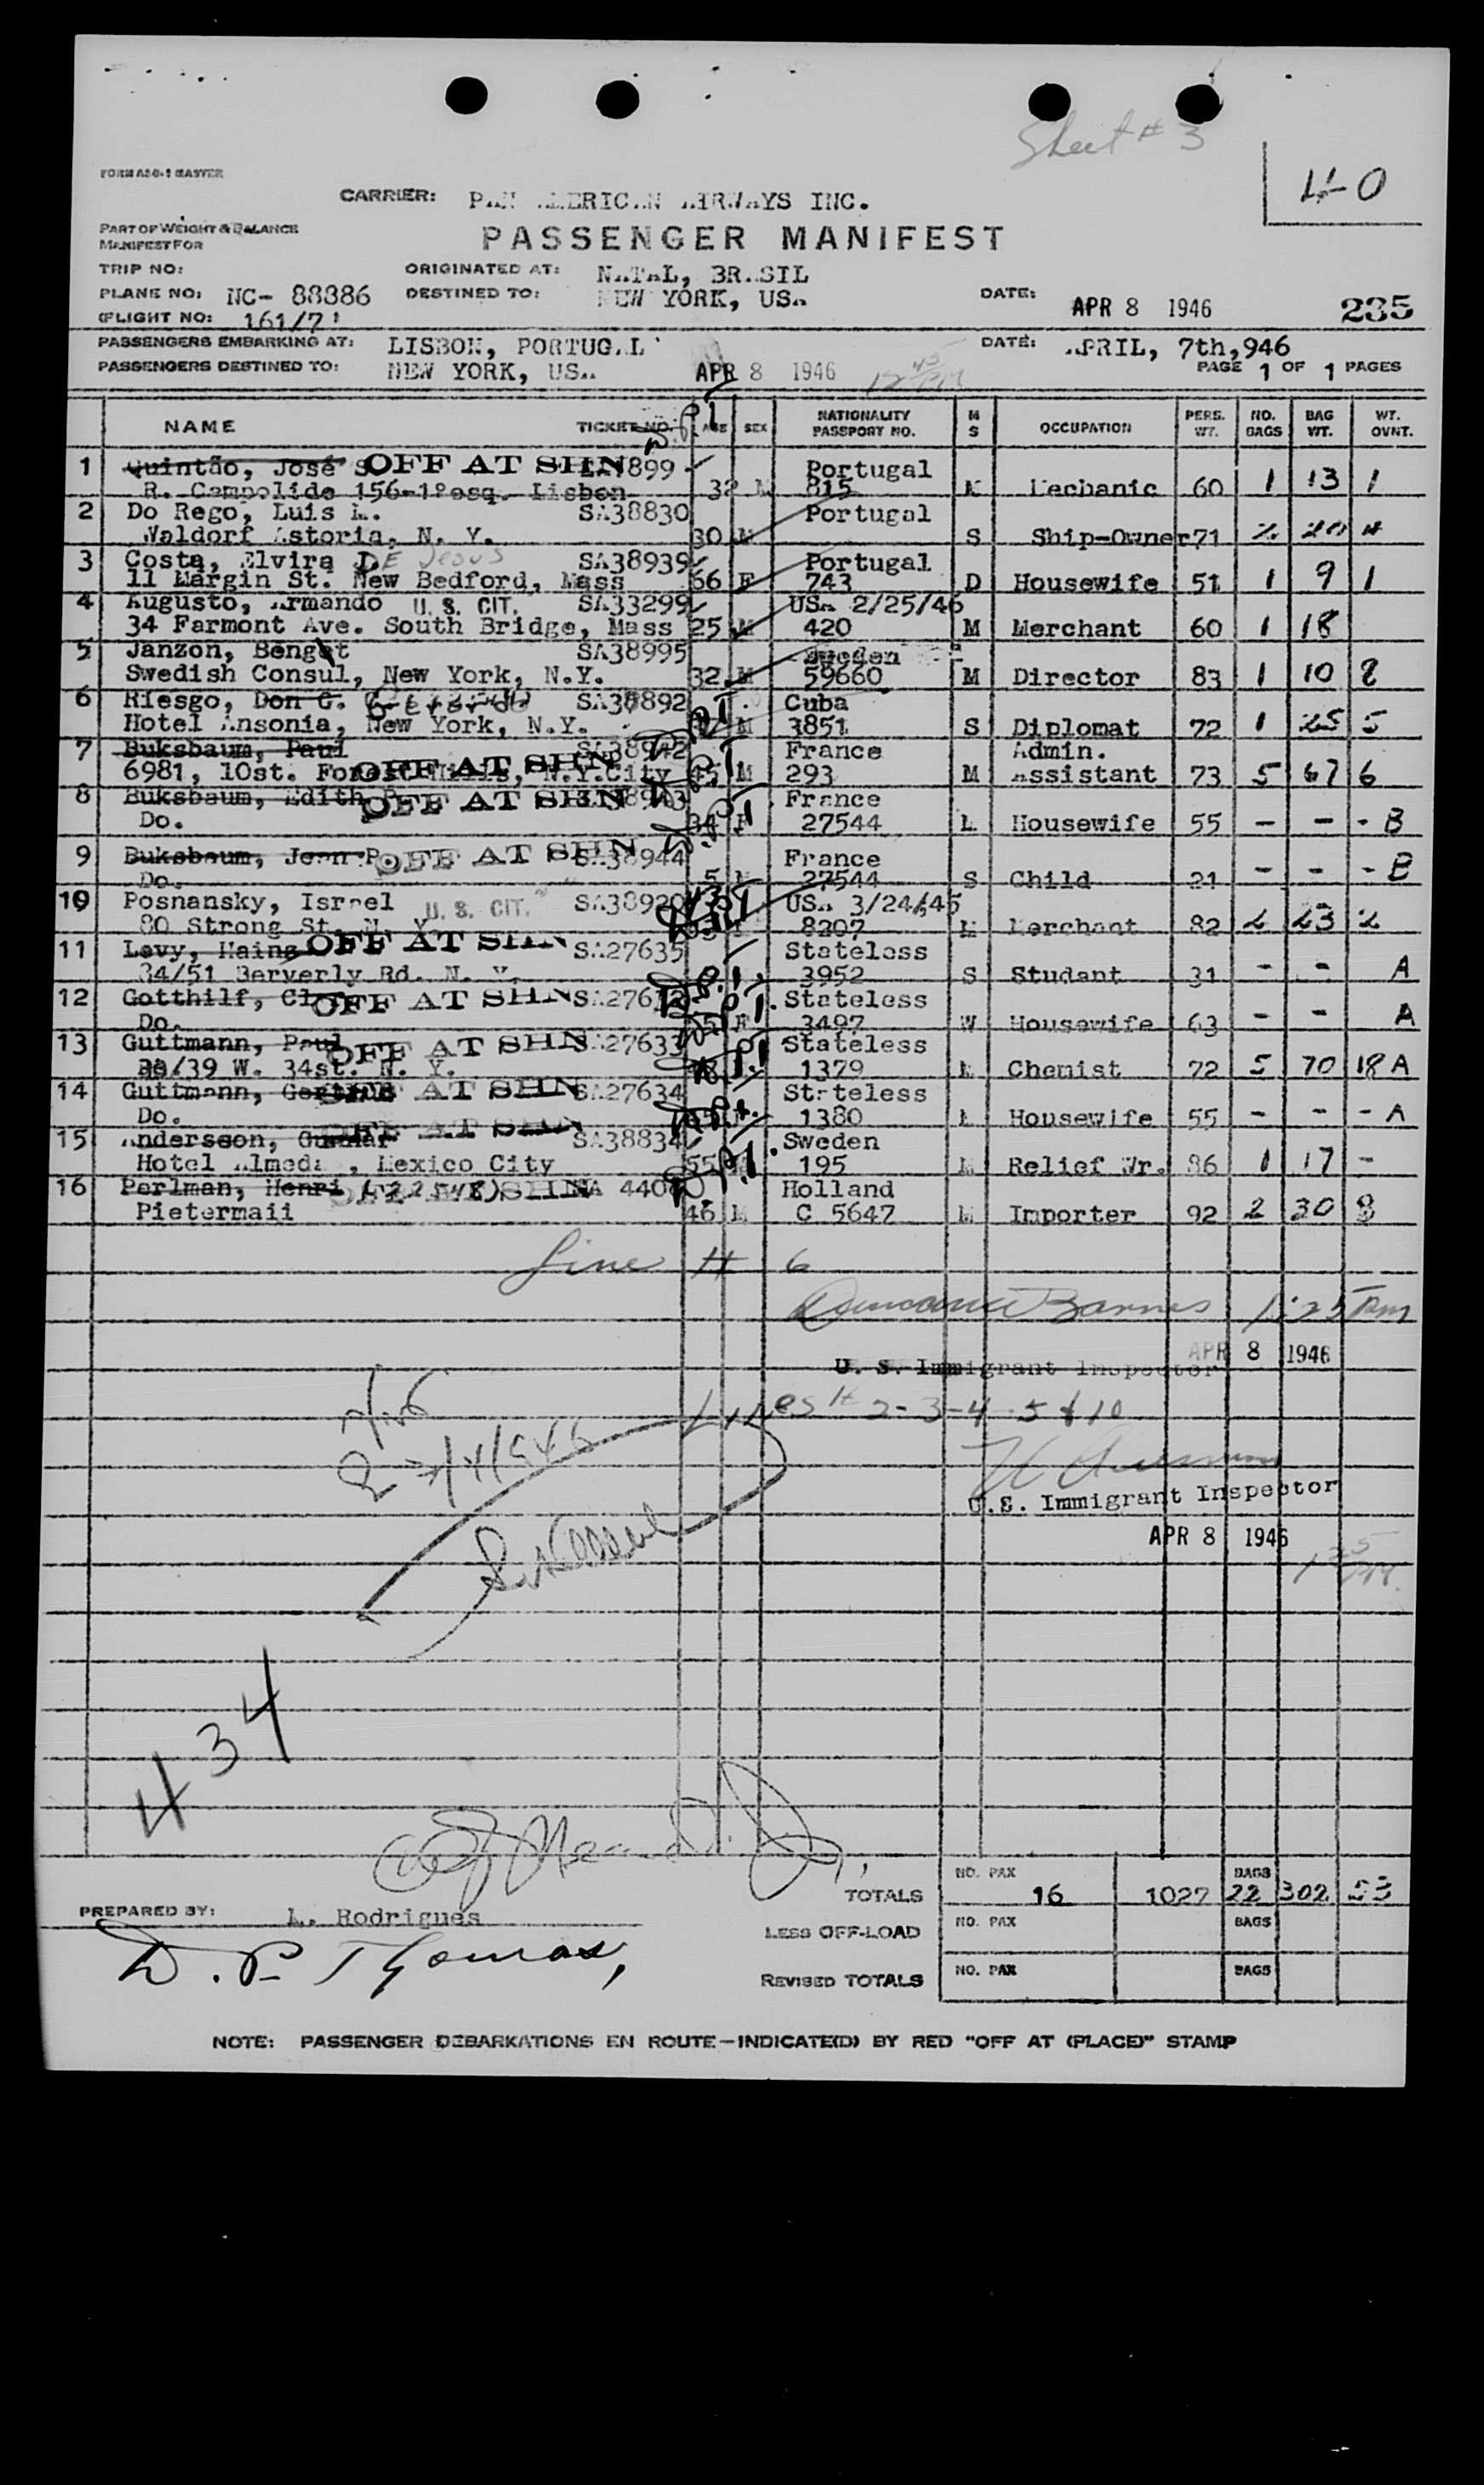 Sheet # 3
FORM ASO-1 MASTER
4-0
CARRIER: PAN AMERICAN AIRWAYS INC.
PART OF WEIGHT & BALANCE
MANIFEST FOR
PASSENGER MANIFEST
TRIP NO: ORIGINATED AT: NATAL, BRASIL
PLANE NO: NC- 88886 DESTINED TO: NEW YORK, USA DATE: APR 8 1946 235
(FLIGHT NO: 161/7
PASSENGERS EMBARKING AT: LISBON, PORTUGAL DATE: APRIL, 7th,946
PASSENGERS DESTINED TO: NEW YORK, USA APR 8 1946 12 45 PM PAGE 1 OF 1 PAGES
NAME TICKET NO. AGE SEX NATIONALITY PASSPORT NO. M S OCCUPATION PERS. WT. NO. BAGS BAG WT. WT. OVNT.
1 Quintão, José S OFF AT SHN 899 Portugal
R. Campolide 156-1ºesq. Lisbon 32 M 815 M Mechanic 60 1 13 1
2 Do Rego, Luis M. SA38830 Portugal
Waldorf Astoria, N. Y. 30 M S Ship-Owner 71 2 20 4
3 Costa, Elvira DE Jesus SA38939 Portugal
11 Margin St. New Bedford, Mass 66 F 743 D Housewife 51 1 9 1
4 Augusto, Armando U. S. CIT. SA33299 USA 2/25/46
34 Farmont Ave. South Bridge, Mass 25 M 420 M Merchant 60 1 18
5 Janzon, Bengt SA38995 Sweden
Swedish Consul, New York, N.Y. 32 M 59660 M Director 83 1 10 8
6 Riesgo, Don G. Gerardo SA38892 Cuba
Hotel Ansonia, New York, N.Y. M 3851 S Diplomat 72 1 25 5
7 Buksbaum, Paul SA38942 France Admin.
6981, 10st. Forest Hills, N.Y.City OFF AT SHN 45 M 293 M Assistant 73 5 67 6
8 Buksbaum, Edith OFF AT SHN 38943 France
Do. 34 F 27544 M Housewife 55 - - - B
9 Buksbaum, Jean P. OFF AT SHN SA38944 France
Do. 5 M 27544 S Child 21 - - - B
10 Posnansky, Israel U. S. CIT. SA38920 USA 3/24/45
80 Strong St. N. Y. 8207 M Merchant 82 2 23 2
11 Levy, Haina OFF AT SHN SA27635 Stateless
84/51 Berverly Rd. N. Y. 3952 S Studant 31 - - A
12 Gotthilf, OFF AT SHN SA27632 Stateless
Do. F 3497 W Housewife 63 - - A
13 Guttmann, Paul OFF AT SHN SA27633 Stateless
39/39 W. 34st. N. Y. 1379 M Chemist 72 5 70 18 A
14 Guttmann, Gertrud OFF AT SHN SA27634 Stateless
Do. 1380 M Housewife 55 - - - A
15 Andersson, Gunnar OFF AT SHN SA38834 Sweden
Hotel Almeda, Mexico City 55 195 M Relief Wr. 86 1 17 -
16 Perlman, Henri OFF AT SHN SA 440 Holland
Pietermaii 46 M C 5647 M Importer 92 2 30 8
Line # 6
Barnes 1:25 PM
APR 8 1946
U. S. Immigrant Inspector
Lines # 2-3-4-5 & 10
U.S. Immigrant Inspector
APR 8 1946
1 35 PM.
434
TOTALS NO. PAX 16 1027 BAGS 22 302 53
PREPARED BY: L. Rodrigues
LESS OFF-LOAD NO. PAX BAGS
D. P. Thomas,
REVISED TOTALS NO. PAX BAGS
NOTE: PASSENGER DEBARKATIONS EN ROUTE—INDICATE(D) BY RED "OFF AT (PLACE)" STAMP